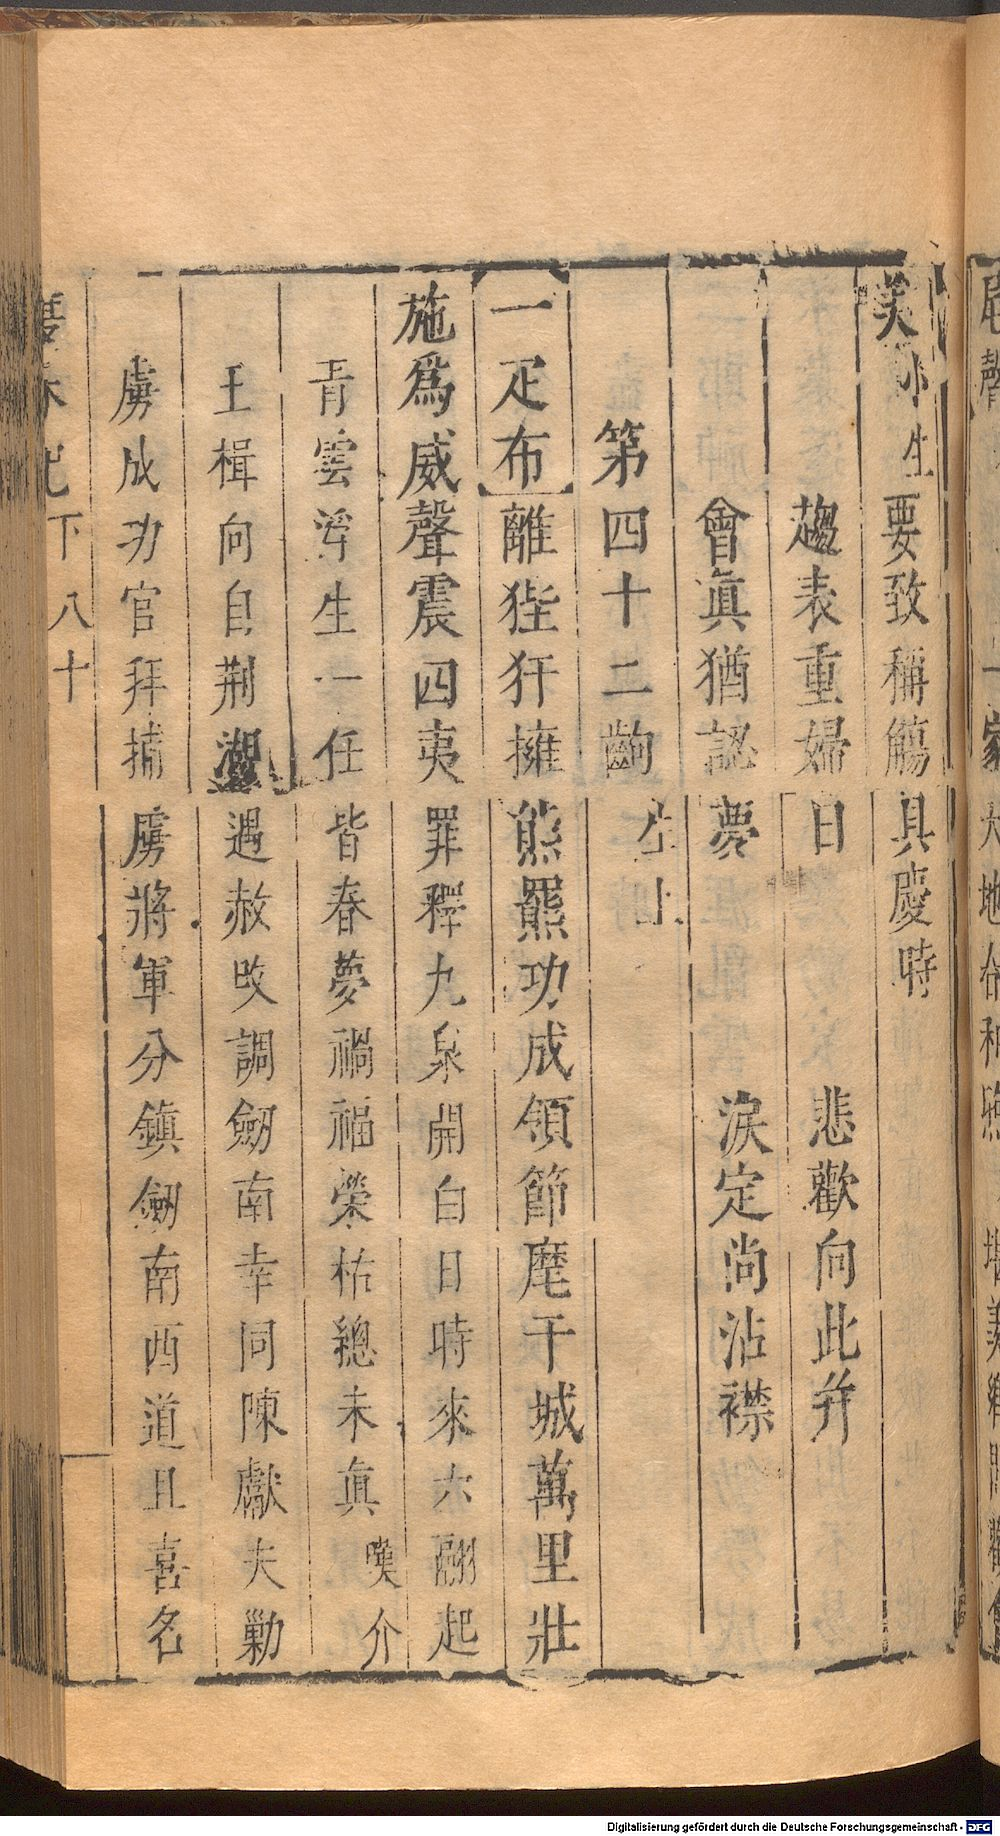 美 小生 要致稱觴 具慶時
趨表重婦日 悲歡向此并
會真猶認夢 淚定尚沾襟
第四十二齣
一疋布 離狴犴擁熊羆功成領節麾干城萬里壯
施爲威聲震四夷 罪釋九泉開白日時來六翮起
青雲浮生一任皆春夢禍福榮枯總未真 嘆介
王楫向自荆湖遇赦改調劒南幸同陳獻夫勦
虜成功官拜捕虜將軍分鎮劒南西道且喜名
下 八十
Digitalisierung gefördert durch die Deutsche Forschungsgemeinschaft - DFG